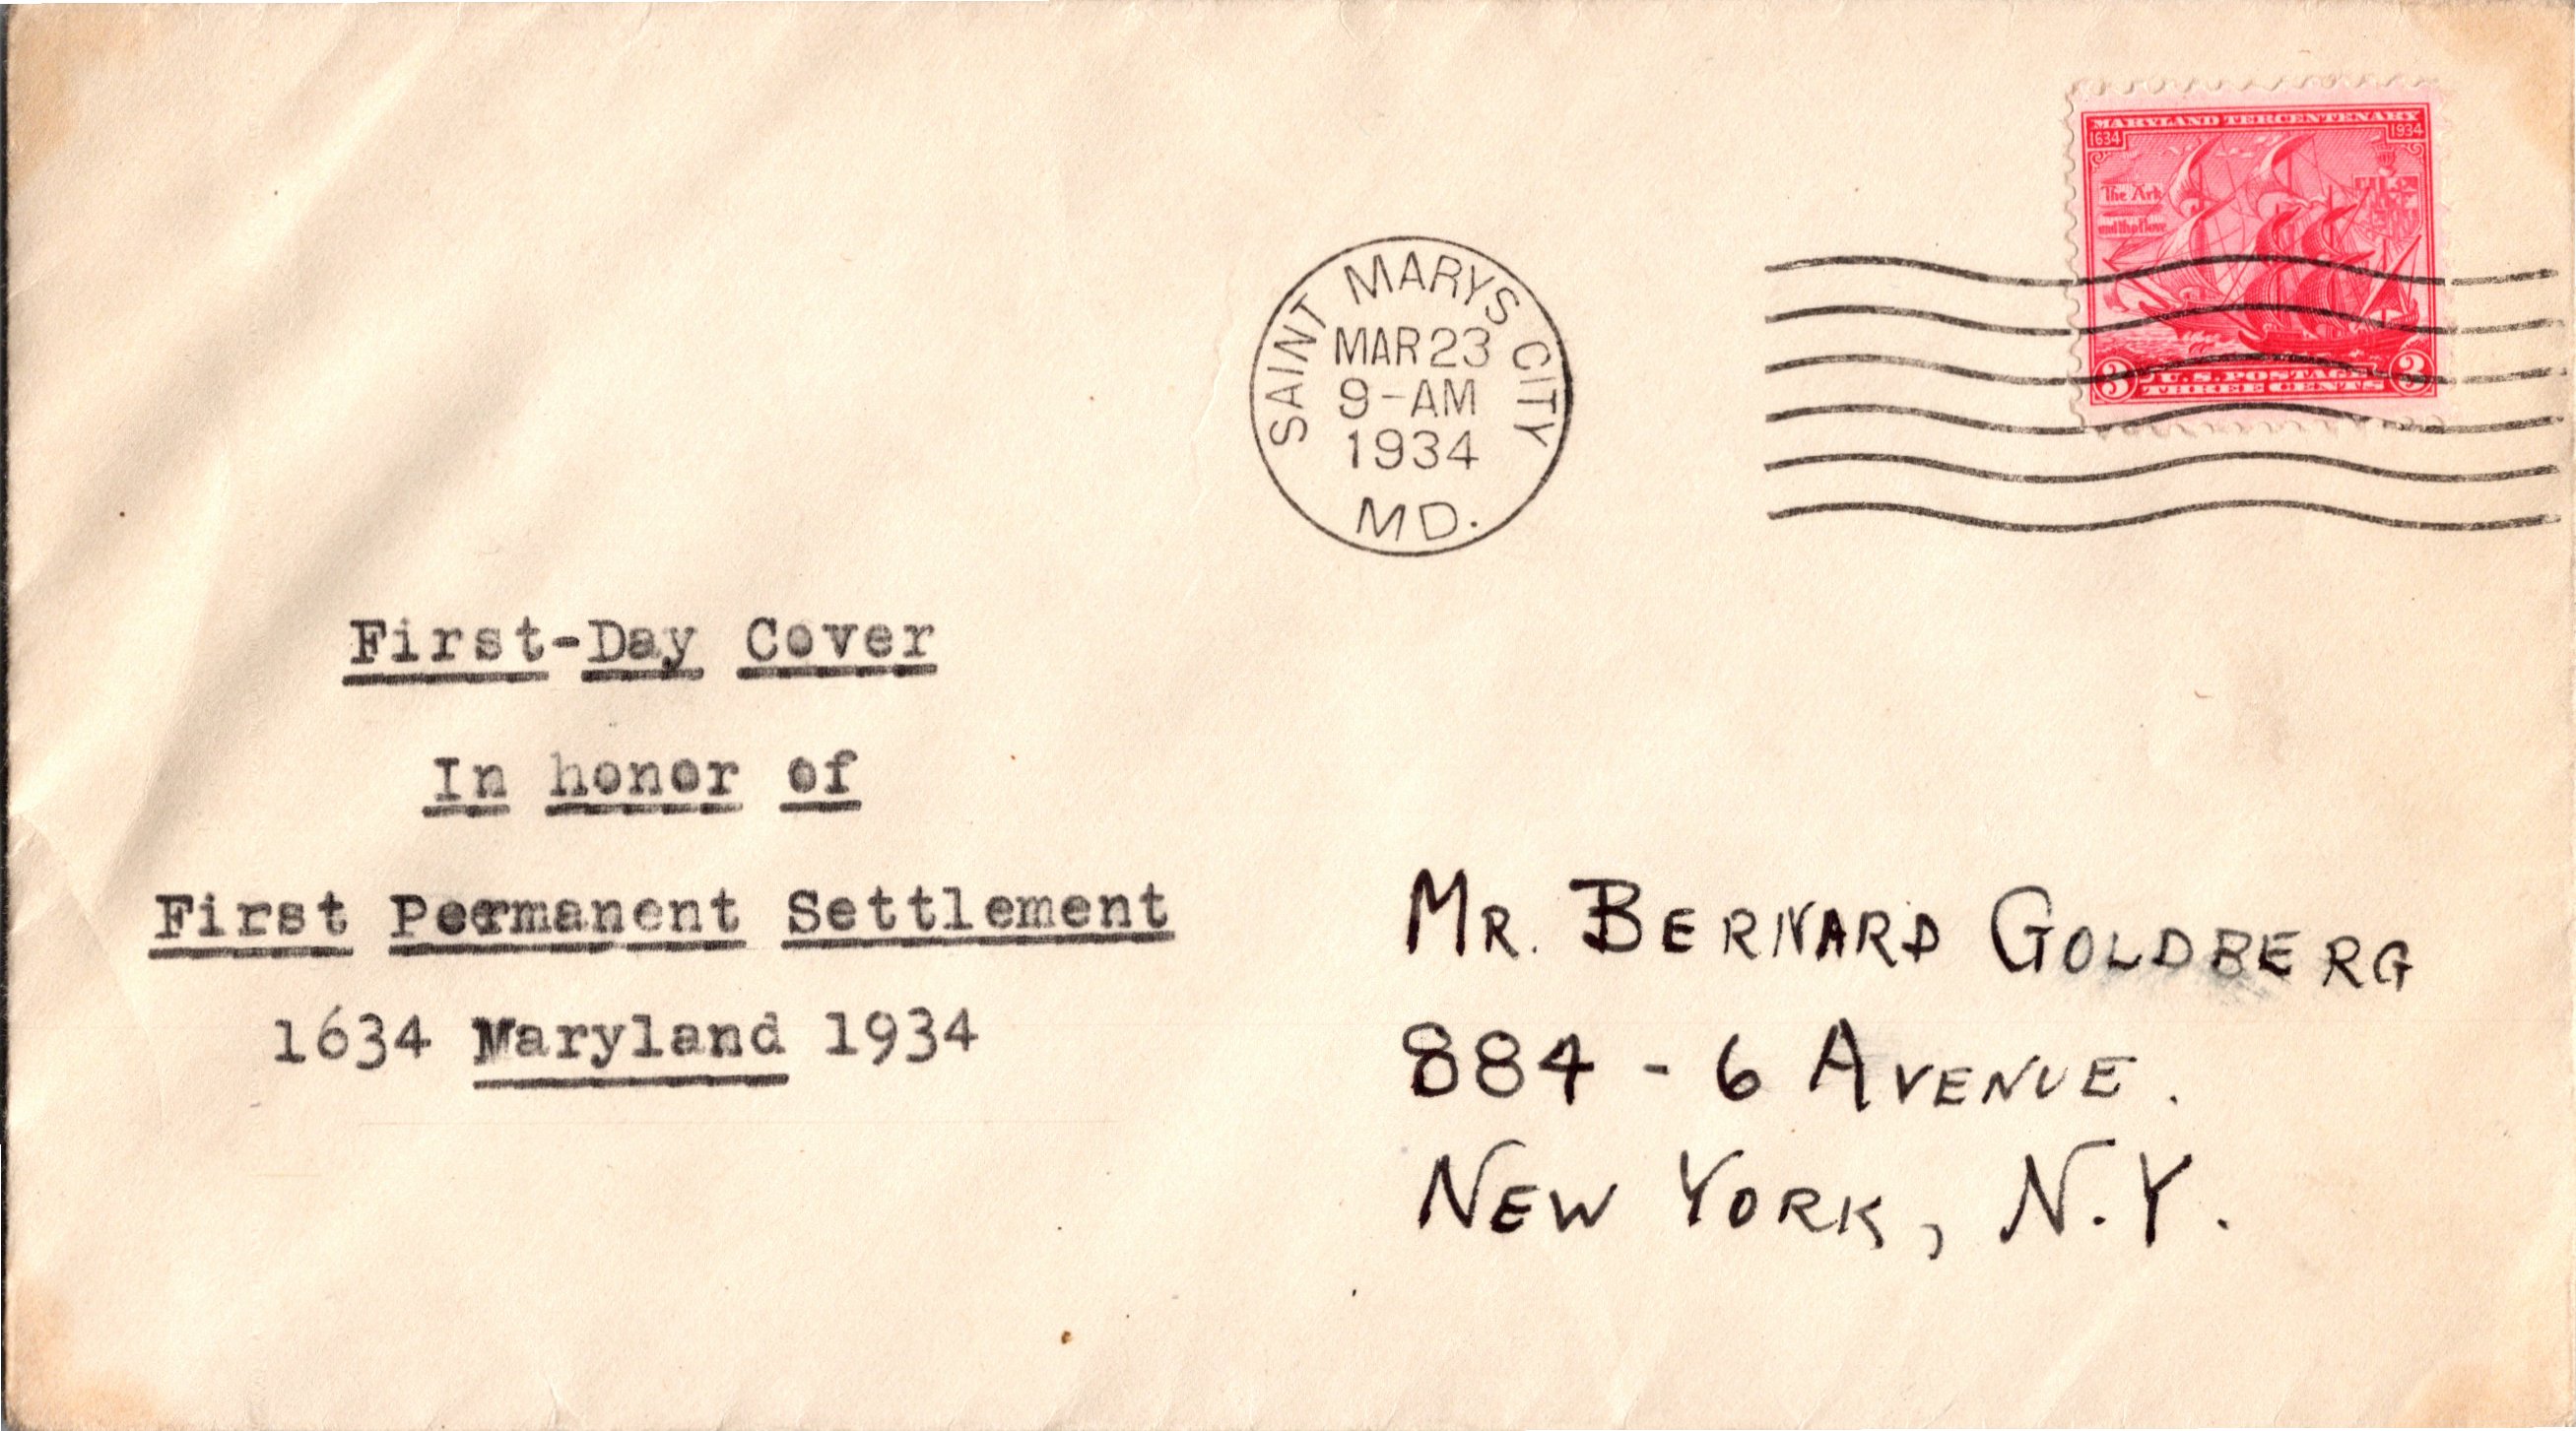 MARYLAND TERCENTENARY
1634 1934
The Ark
and the Dove
3 U.S. POSTAGE 3
THREE CENTS
SAINT MARYS CITY
MAR 23
9-AM
1934
MD.
First-Day Cover
In honor of
First Permanent Settlement
1634 Maryland 1934
MR. BERNARD GOLDBERG
884 - 6 AVENUE.
NEW YORK, N.Y.